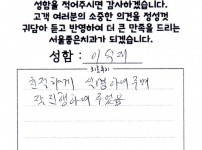 성함을 적어주시면 감사하겠습니다.
고객 여러분의 소중한 의견을 정성껏
귀담아 듣고 반영하여 더 큰 만족을 드리는
서울좋은치과가 되겠습니다.
성함 : 이
친절하게 설명하여주며
잘 진행하여 주었음